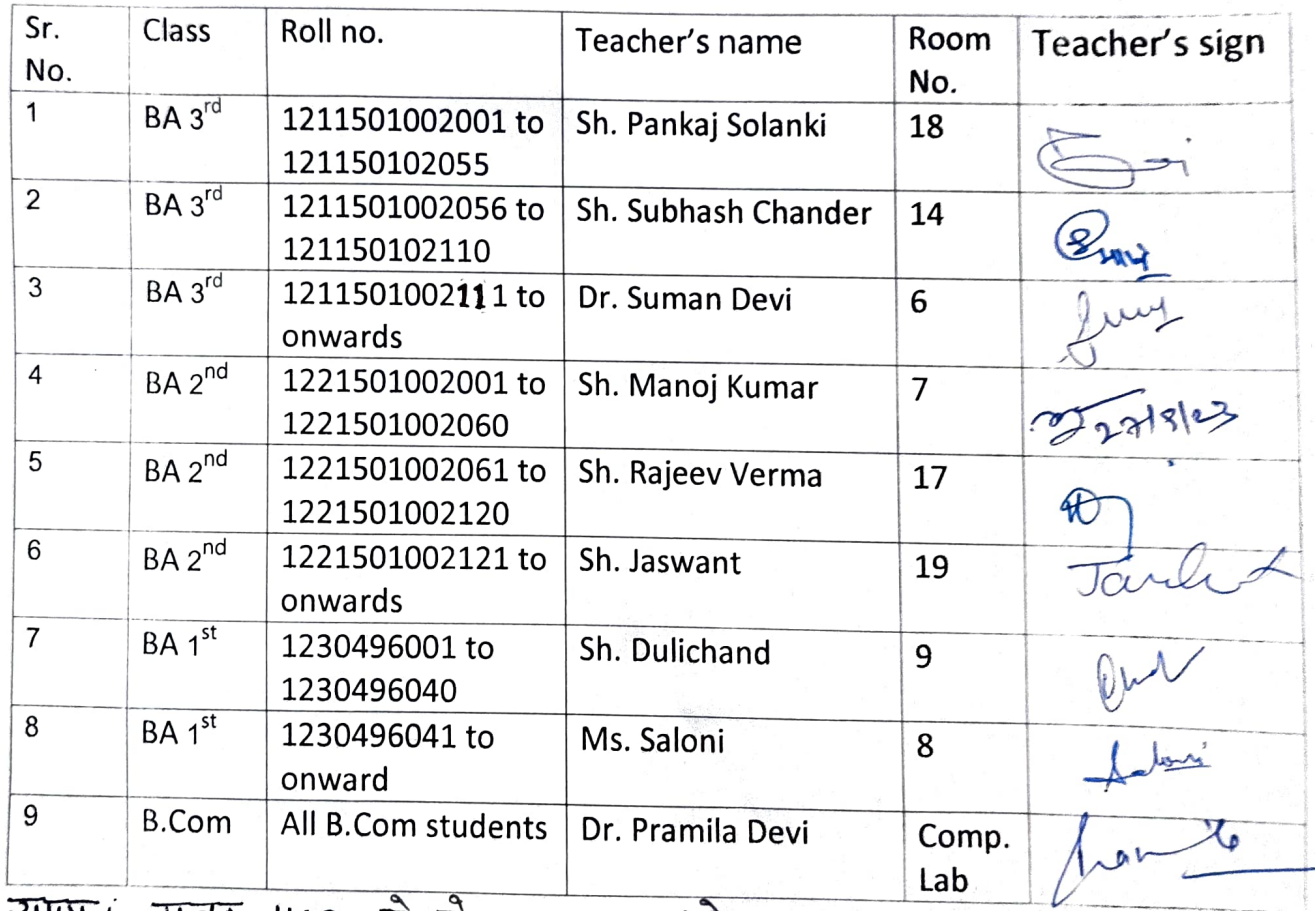 Sr. No. Class Roll no. Teacher's name Room No. Teacher's sign
1 BA 3rd 1211501002001 to 121150102055 Sh. Pankaj Solanki 18
2 BA 3rd 1211501002056 to 121150102110 Sh. Subhash Chander 14
3 BA 3rd 1211501002111 to onwards Dr. Suman Devi 6
4 BA 2nd 1221501002001 to 1221501002060 Sh. Manoj Kumar 7 27/9/23
5 BA 2nd 1221501002061 to 1221501002120 Sh. Rajeev Verma 17
6 BA 2nd 1221501002121 to onwards Sh. Jaswant 19
7 BA 1st 1230496001 to 1230496040 Sh. Dulichand 9
8 BA 1st 1230496041 to onward Ms. Saloni 8 Saloni
9 B.Com All B.Com students Dr. Pramila Devi Comp. Lab